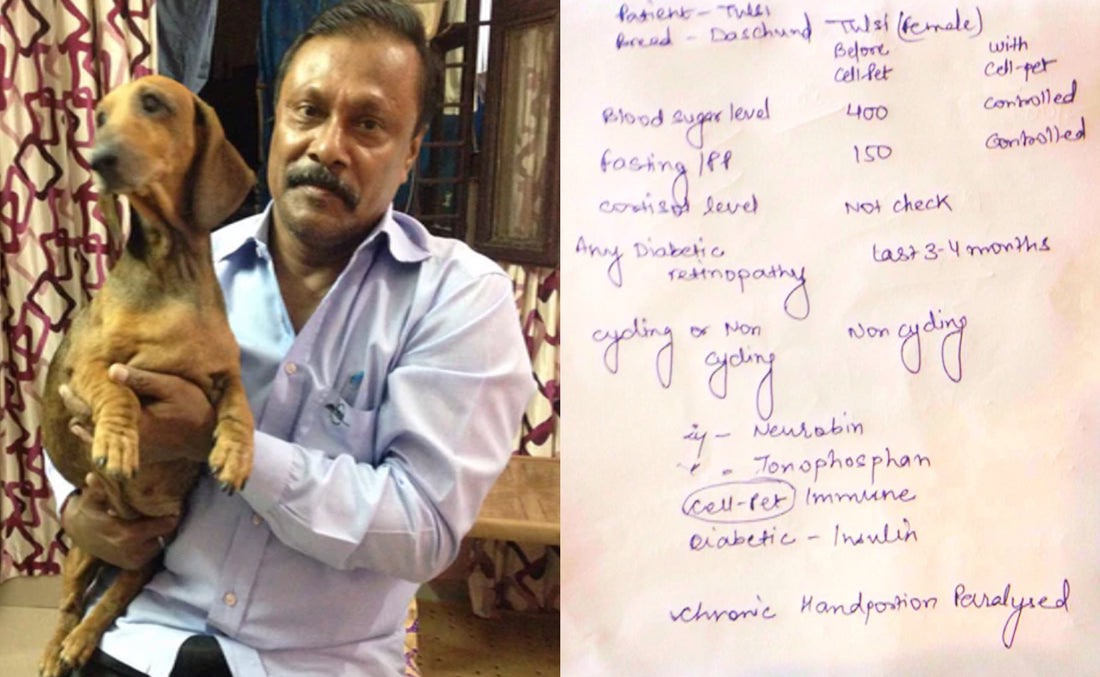 Patient - Tulsi
Breed - Daschund Tulsi (female)
Before Cell-Pet
with cell-pet
Blood sugar level 400 controlled
fasting / PP 150 controlled
cortisol level Not check
Any Diabetic retinopathy Last 3-4 months
cycling or Non cycling Non cycling
- Neurobin
- Tonophosphan
Cell-Pet Immune
Diabetic - Insulin
chronic Handpostion Paralysed